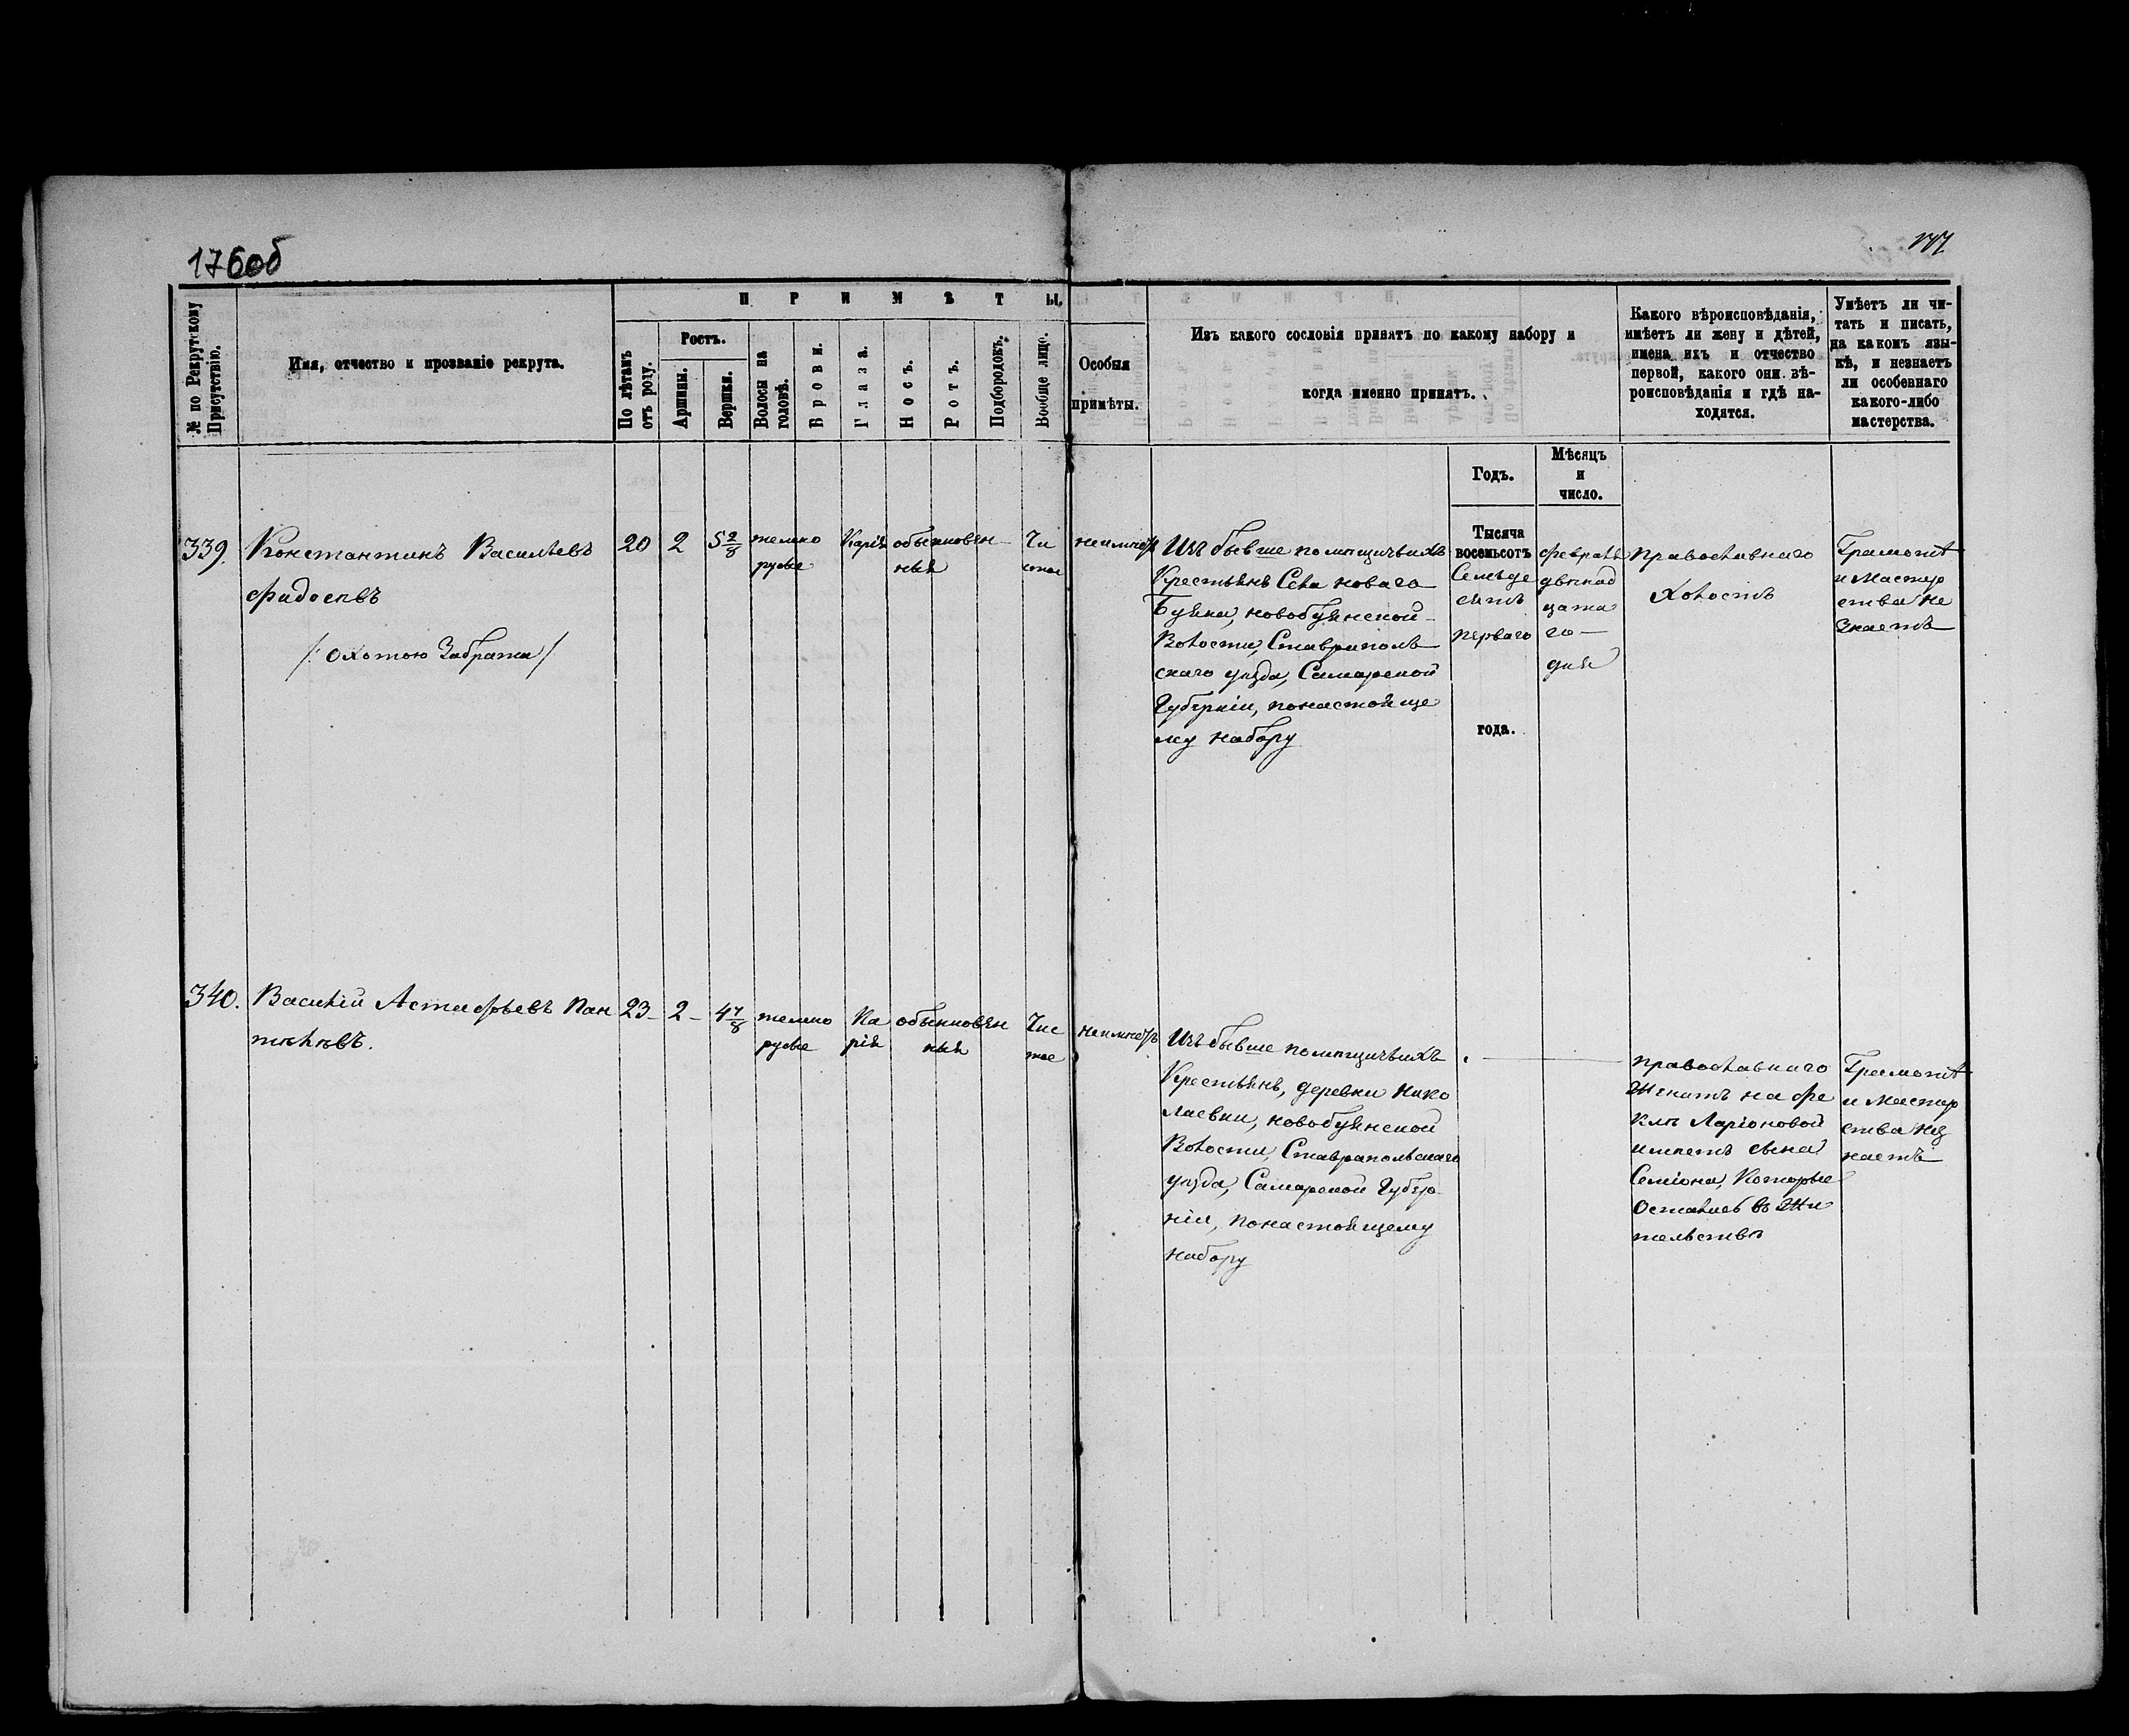 176об
177
ПРИМѢТЫ.
№ по Рекрутскому Присутствію.
Имя, отчество и прозваніе рекрута.
По лѣтамъ отъ роду.
Ростъ.
Аршины.
Вершки.
Волосы на головѣ.
Брови.
Глаза.
Носъ.
Ротъ.
Подбородокъ.
Вообще лицо.
Особыя
примѣты.
Изъ какого сословія принятъ по какому набору и
когда именно принятъ.
Какого вѣроисповѣданія,
имѣетъ ли жену и дѣтей,
имена ихъ и отчество
первой, какого они вѣ-
роисповѣданія и гдѣ на-
ходятся.
Умѣетъ ли чи-
тать и писать,
на какомъ язы-
кѣ, и незнаетъ
ли особеннаго
какого-либо
мастерства.
Годъ.
Мѣсяцъ
и
число.
339.
Константинъ Васильевъ
Фидосѣевъ
/: охотою за брата /
20
2
5 2/8
темно
русые
Карія
обыкновен-
ныя
Чи
стое
Изъ бывше помѣщичьихъ
Крестьянъ Села новаго
Буяна, новобуянской
Волости, Ставрополь
скаго уѣзда, Самарской
Губерніи, понастояще
му набору
Тысяча
восемьсотъ
Семьде
сятъ
перваго
года.
февраля
двѣнад
цата
го
дня
православнаго
Холостъ
Грамотѣ
и Мастер
ства не
знаетъ
340.
Василий Астафьевъ Пан
телѣевъ.
23
2
4 7/8
темно
русые
Ка
рія
обыкновен
ныя
Чис
тое
Изъ бывше помѣщичьихъ
Крестьянъ, деревни Нико
лаевки, новобуянской
Волости, Ставропольскаго
уѣзда, Самарской Губер
ніи, понастоящему
набору
православнаго
Женатъ на Фе
клѣ Ларіоновой
имѣетъ сына
Семіона, Которые
Остались въ Жи
тельствѣ
Грамотѣ
и Мастер
ства нез
наетъ